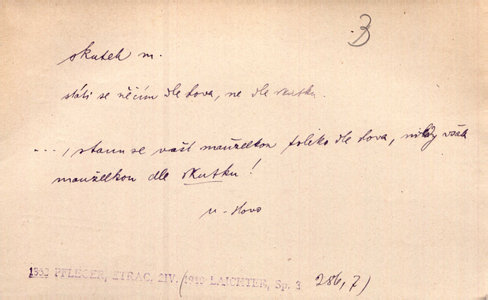 3
skutek m.
státi se něčím dle slova, ne dle skutku.
..., stanu se vaší manželkou toliko dle slova, nikdy však
manželkou dle skutku!
v. slovo
1932 PFLEGER, ZTRAC. ŽIV. (1910 LAICHTER, Sp. 3 286,7)